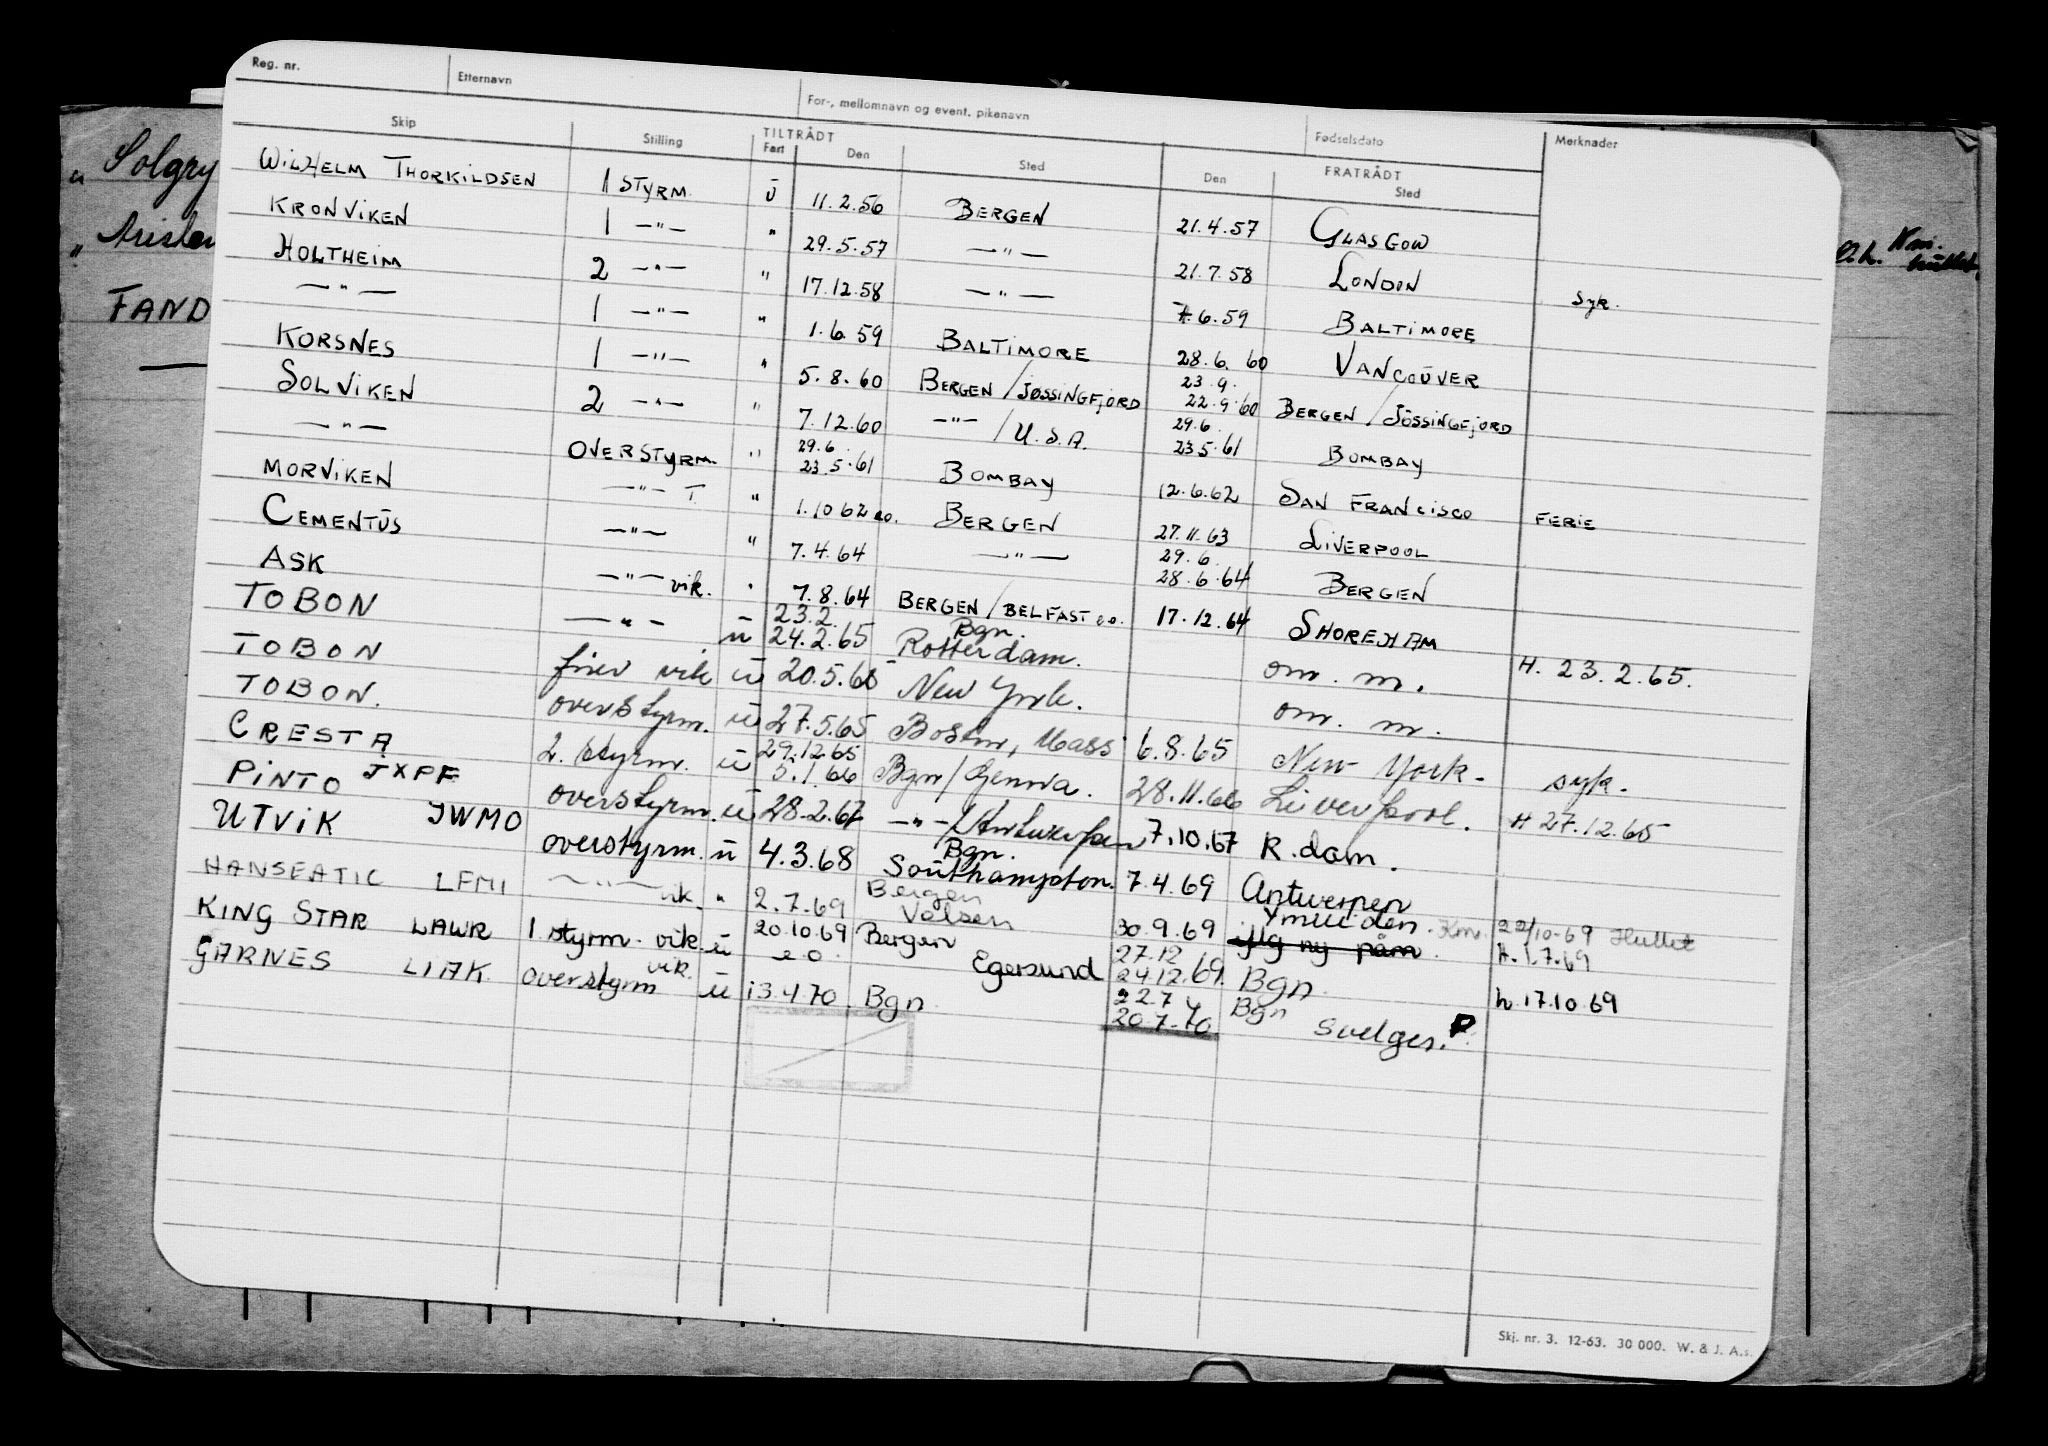 Reg. nr. Etternavn For-, mellomnavn og event. pikenavn Fødselsdato Merknader
Skip Stilling TILTRÅDT Fart Den Sted FRATRÅDT Den Sted
WILHELM THORKILDSEN 1 STYRM. Ü 11.2.56 BERGEN 21.4.57 GLASGOW
KRONVIKEN 1 —"— " 29.5.57 —"— 21.7.58 LONDON SYK.
HOLTHEIM 2 —"— " 17.12.58 —"— 7.6.59 BALTIMORE
—"— 1 —"— " 1.6.59 BALTIMORE 28.6.60 VANCOUVER
KORSNES 1 —"— " 5.8.60 BERGEN/JØSSINGFJORD 23.9. 22.9.60 BERGEN/JÖSSINGFJORD
SOLVIKEN 2 —"— " 7.12.60 —"—/U.S.A. 29.6. 23.5.61 BOMBAY
—"— OVERSTYRM. " 29.6. 23.5.61 BOMBAY 12.6.62 SAN FRANCISCO FERIE
MORVIKEN —"— T. " 1.10 62 eo. BERGEN 27.11.63 LIVERPOOL
CEMENTUS —"— " 7.4.64 —"— 29.6. 28.6.64 BERGEN
ASK —"— vik. " 7.8.64 BERGEN/BELFAST e.o. 17.12.64 SHOREHAM
TOBON —"— ü 23.2. 24.2.65 Bgn. Rotterdam. om. m. H. 23.2.65.
TOBON fürer vik ü 20.5.65 New York. om. m.
TOBON. overstyrm. ü 27.5.65 Boston, Mass 6.8.65 New York. syk.
CRESTA 2. styrm. ü 29.12.65 5.1.66 Bgn/Genova. 28.11.66 Liverpool. H 27.12.65
PINTO JXPF overstyrm. ü 28.2.67 —"—/Antwerpen 7.10.67 R.dam.
UTVIK JWMO overstyrm. ü 4.3.68 Bgn. Southampton. 7.4.69 Antwerpen
HANSEATIC LFMI —"— vik. " 2.7.69 Bergen Velsen 30.9.69 Ymuiden. Km. 22/10-69 Hullet
H. 1.7.69
KING STAR LAWR 1. styrm. vik. ü 20.10.69 e o. Bergen Egersund 27.12 24.12.69. Bgn. h. 17.10.69
GARNES LIAK overstyrm vik. ü 13.4.70. Bgn 22.7 20.7.70. Bgn Svelgen.
„ Solgry
„
FAND
Skj. nr. 3. 12-63. 30 000. W. & J. A.s.